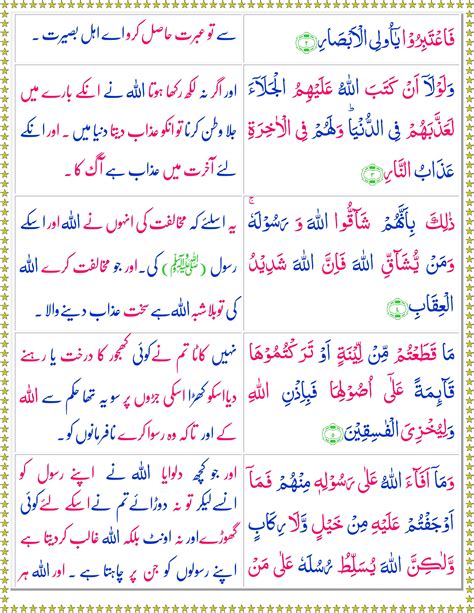 فَاعْتَبِرُوْا يٰٓاُولِى الْاَبْصَارِ ﴿٢﴾
سے تو عبرت حاصل کرو اے اہل بصیرت ۔
وَلَوْلَآ اَنْ كَتَبَ اللّٰهُ عَلَيْهِمُ الْجَلَآءَ
لَعَذَّبَهُمْ فِى الدُّنْيَا ؕ وَلَهُمْ فِى الْاٰخِرَةِ
عَذَابُ النَّارِ ﴿٣﴾
اور اگر نہ لکھ رکھا ہوتا اللہ نے انکے بارے میں
جلا وطن کرنا تو انکو عذاب دیتا دنیا میں ۔ اور انکے
لئے آخرت میں عذاب ہے آگ کا ۔
ذٰلِكَ بِاَنَّهُمْ شَآقُّوا اللّٰهَ وَ رَسُوْلَهٗ ۚ
وَمَنْ يُّشَآقِّ اللّٰهَ فَاِنَّ اللّٰهَ شَدِيْدُ
الْعِقَابِ ﴿٤﴾
یہ اسلئے کہ مخالفت کی انہوں نے اللہ اور اسکے
رسول (ﷺ) کی۔ اور جو مخالفت کرے اللہ
کی توبلاشبہ اللہ ہے سخت عذاب دینے والا ۔
مَا قَطَعْتُمْ مِّنْ لِّيْنَةٍ اَوْ تَرَكْتُمُوْهَا
قَآئِمَةً عَلٰٓى اُصُوْلِهَا فَبِاِذْنِ اللّٰهِ
وَلِيُخْزِىَ الْفٰسِقِيْنَ ﴿٥﴾
نہیں کاٹا تم نے کوئی کھجور کا درخت یا رہنے
دیا اسکو کھڑا اسکی جڑوں پر سو یہ تھا حکم سے اللہ
کے اور تا کہ وہ رسوا کرے نافرمانوں کو ۔
وَمَآ اَفَآءَ اللّٰهُ عَلٰى رَسُوْلِهٖ مِنْهُمْ فَمَآ
اَوْجَفْتُمْ عَلَيْهِ مِنْ خَيْلٍ وَّلَا رِكَابٍ
وَّلٰكِنَّ اللّٰهَ يُسَلِّطُ رُسُلَهٗ عَلٰى مَنْ
اور جو کچھ دلوایا اللہ نے اپنے رسول کو
انسے لیکر تو نہ دوڑائے تم نے اسکے لئے کوئی
گھوڑے اور نہ اونٹ بلکہ اللہ غالب کر دیتا ہے
اپنے رسولوں کو جن پر چاہتا ہے ۔ اور اللہ ہر